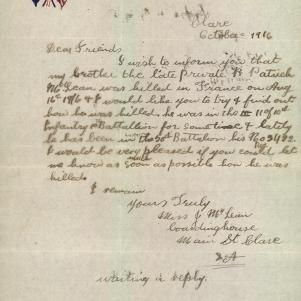 Clare
October 1916
Dear Friends
I wish to inform you that
my brother the late private P Patrick
McLean was killed in France on Aug
16th 1916 & I would like you to try & find out
how he was killed. he was in the 11 of 10st
Infantry Battallion for sometime & lately
he has been in the 50 Battalion his No 3492
I would be very pleased if you could let
me know as soon as possible how he was
killed
I remain
Yours Truly
Miss J McLean
Coardinghouse
Main St Clare
SA
waiting a reply.